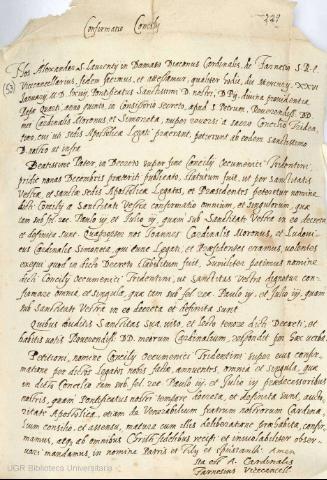 Confirmatio Concilij
Nos Alexander S. Laurentij in Damaso Diaconus Cardinalis, de Farnesio S. R. E.
Vicecancellarius, fidem facimus, et attestamur, qualiter hodie, die Mercurij XXVI
Januarij M D Pontificatus Sanctissimi D. nostri, D. Pij, divina providentia
Papę quarti, anno quinto, in Consistorio secreto, apud S. Petrum,
Cardinales Moronus et Simoneta, nuper reversi a sacro Concilio Triden.
cui sedis Apostolicę Legati pręerant, petierunt ab eodem sanctissimo
D. nostro ut infra
Beatissime Pater, in Decreto super fine Concilij Oecumenici Tridentini
pridie nonas Decembris pręteriti publicato, statutum fuit, ut per sanctitatis
Vestrę, et sanctę sedis Apostolicę Legatos, et Pręsidentes peteretur nomine
dicti Concilij a Sanctitate Vestra confirmatio omnium, et singulorum, quę
tam sub fel. rec. Paulo iij et Julio iij, quam sub Sanctitate Vestra in eo decreta
et definita sunt. Quapropter nos Joannes Cardinalis Moronus, et Ludovi
cus Cardinalis Simoneta, qui tunc Legati, et Pręsidentes eramus, volentes
exequi quod in dicto Decreto statutum fuit, humiliter petimus nomine
dicti Concilij Oecumenici Tridentini, ut sanctitas Vestra dignetur con-
firmare omnia, et singula, quę tam sub fel. rec. Paulo iij, et Julio iij, quam
sub Sanctitate Vestra in eo decreta et definita sunt
Quibus auditis Sanctitas sua, viso, et lecto tenore dicti Decreti, et
habitis votis Cardinalium, respondit his verbis.
Petitioni, nomine Concilij Oecumenici Tridentini super eius confir-
matione per dictos Legatos nobis factę, annuentes, omnia et singula, quę
in dicto Concilio tam sub fel. rec. Paulo iij, et Julio iij prędecessoribus
nostris, quam Pontificatus nostri tempore decreta, et definita sunt, aucto-
ritate Apostolica, etiam de Venerabilium fratrum nostrorum Cardina-
lium consilio, et assensu, matura cum illis deliberatione pręhabita, confir-
mamus, atque ab omnibus Christi fidelibus recipi et inviolabiliter obser-
vari mandamus, in nomine Patris et Filij et spiritussancti. Amen
Ita est A. Cardinalis
Farnesius Vicecancell.
UGR Biblioteca Universitaria